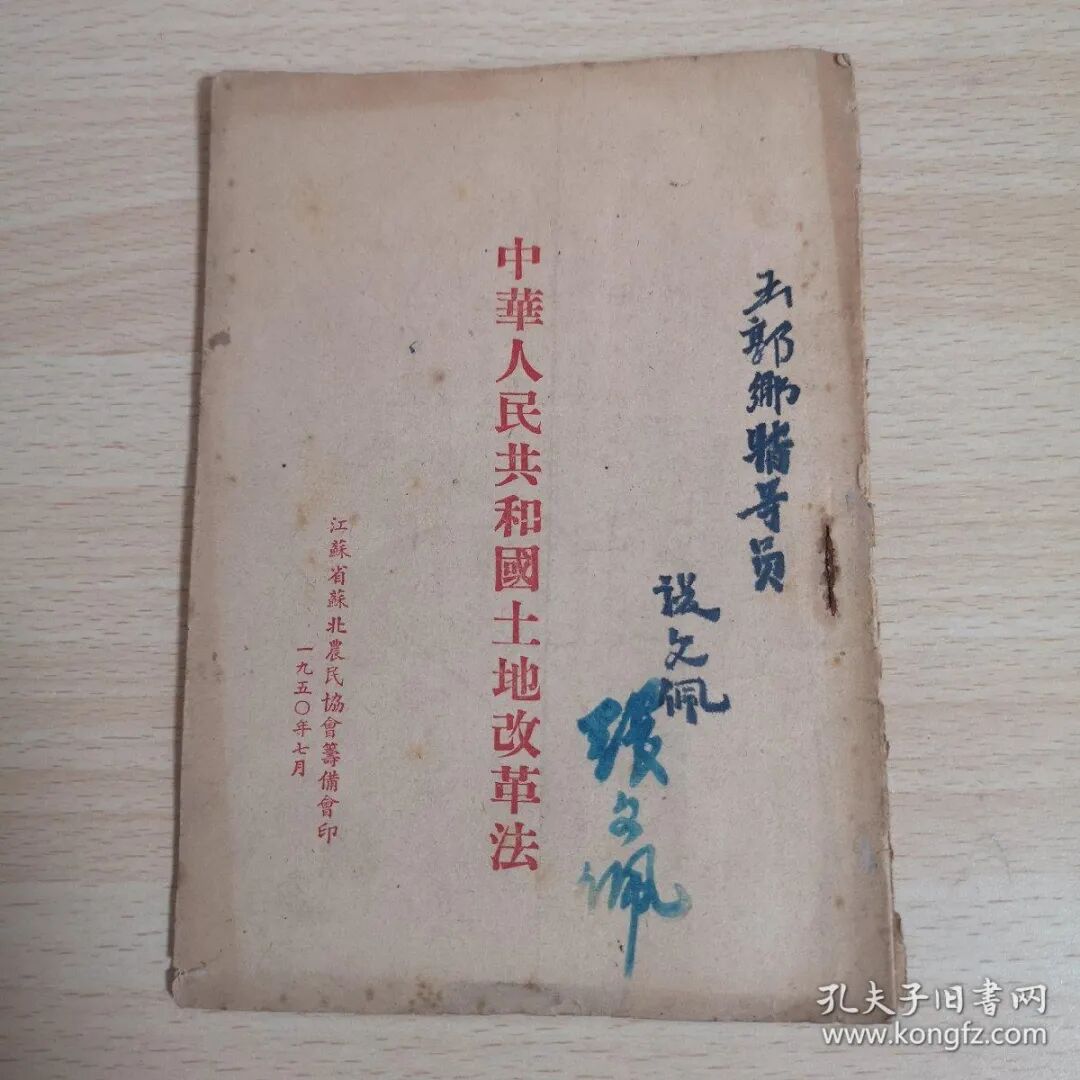 郭鄉指导员
文佩
文佩
中華人民共和國土地改革法
江蘇省蘇北農民協會籌備會印
一九五〇年七月
孔夫子旧书网
www.kongfz.com